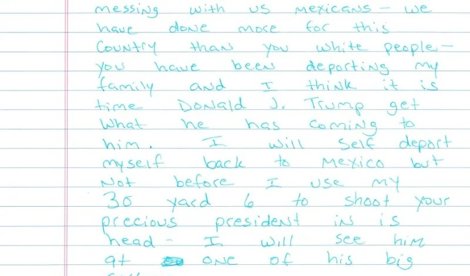 messing with us mexicans - we
have done more for this
country than you white people -
you have been deporting my
family and I think it is
time Donald J. Trump get
what he has coming to
him. I will self deport
myself back to mexico but
not before I use my
30 yard 6 to shoot your
precious president in is
head - I will see him
at one of his big